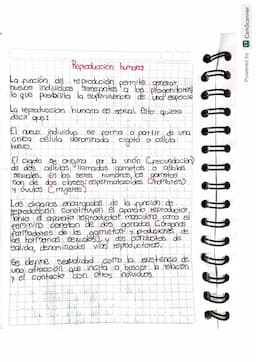 Reproducción humana
La función de reproducción permite generar
nuevos individuos semejantes a los progenitores
lo que posibilita la supervivencia de una especie
La reproducción humana es sexual. Esto quiere
decir que:
El nuevo individuo se forma a partir de una
única célula denominada cigoto o célula
huevo.
El cigoto se origina por la unión (fecundación)
de dos células llamadas gametos o células
sexuales. En los seres humanos, los gametos
son de dos clases: espermatozoides (hombres)
y óvulos (mujeres)
Los órganos encargados de la función de
reproducción constituyen el aparato reproductor.
Tanto el aparato reproductor masculino como el
femenino constan de dos gonadas (órganos
formadores de los gametos y productores de
las hormonas sexuales) y dos conductos de
salida, denominados vías reproductoras.
Se define sexualidad como la existencia de
una atracción que incita a buscar la relación
y el contacto con otros individuos.
Powered by CamScanner